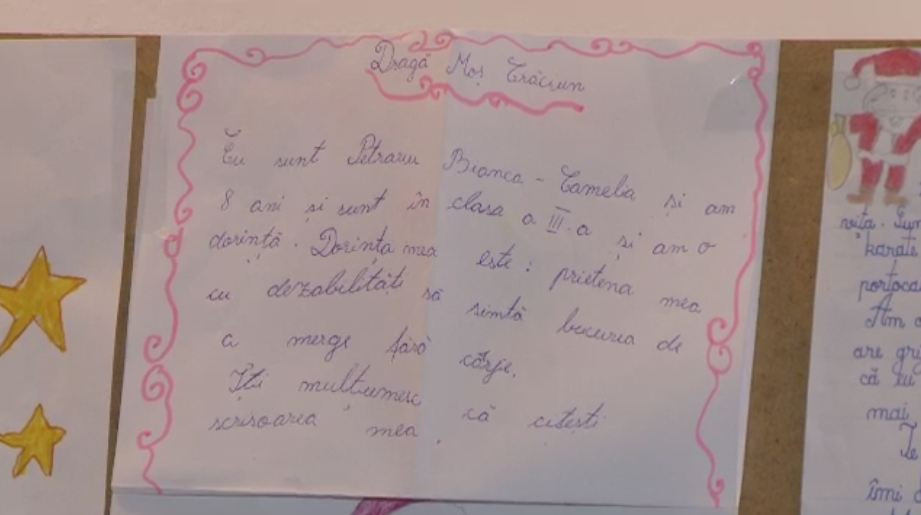 Dragă Moș Crăciun
Eu sunt Petrariu Bianca - Camelia și am
8 ani și sunt în clasa a III-a și am o
dorință. Dorința mea este: prietena mea
cu dezabilități să simtă bucuria de
a merge fără cârje.
Îți mulțumesc că citești
scrisoarea mea.
karate
Am
are
că eu
mai
Te
îmi